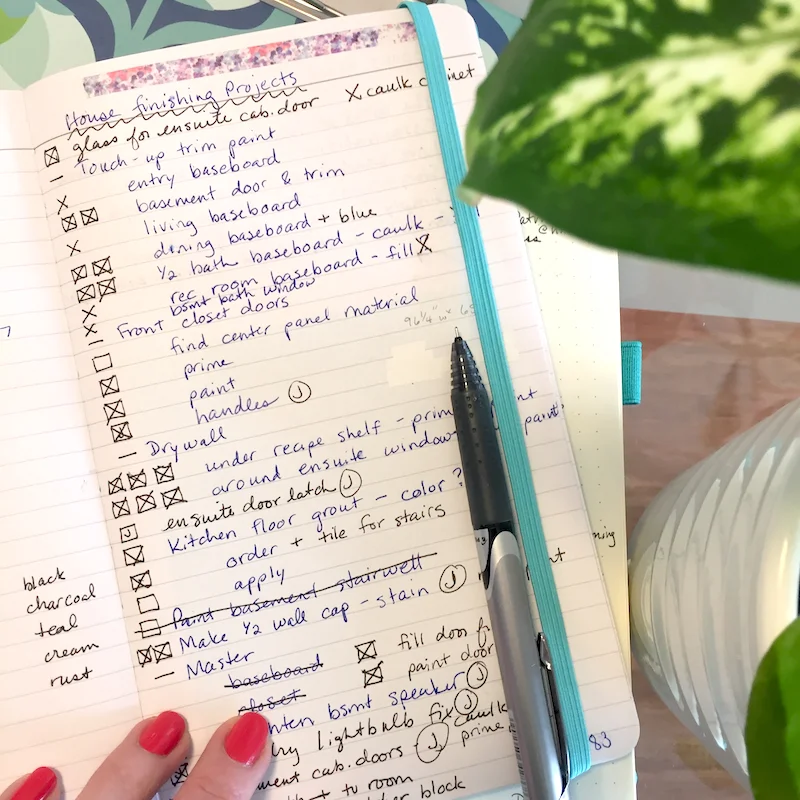 House finishing Projects
X caulk cabinet
glass for ensuite cab. door
Touch-up trim paint
entry baseboard
basement door & trim
living baseboard
dining baseboard + blue
1/2 bath baseboard - caulk -
rec room baseboard - fill X
bsmt bath window
Front closet doors
find center panel material
96 1/4" w x 6
prime
paint
handles J
Drywall
under recipe shelf - prim
around ensuite window paint
ensuite door latch J
Kitchen floor grout - color ?
order + tile for stairs
apply
Paint basement stairwell
Make 1/2 wall cap - stain J
Master
baseboard
fill door
closet
paint door
bsmt speaker J
lightbulb fix J
cab. doors - J caulk prime
to room
block
83
black
charcoal
teal
cream
rust
7